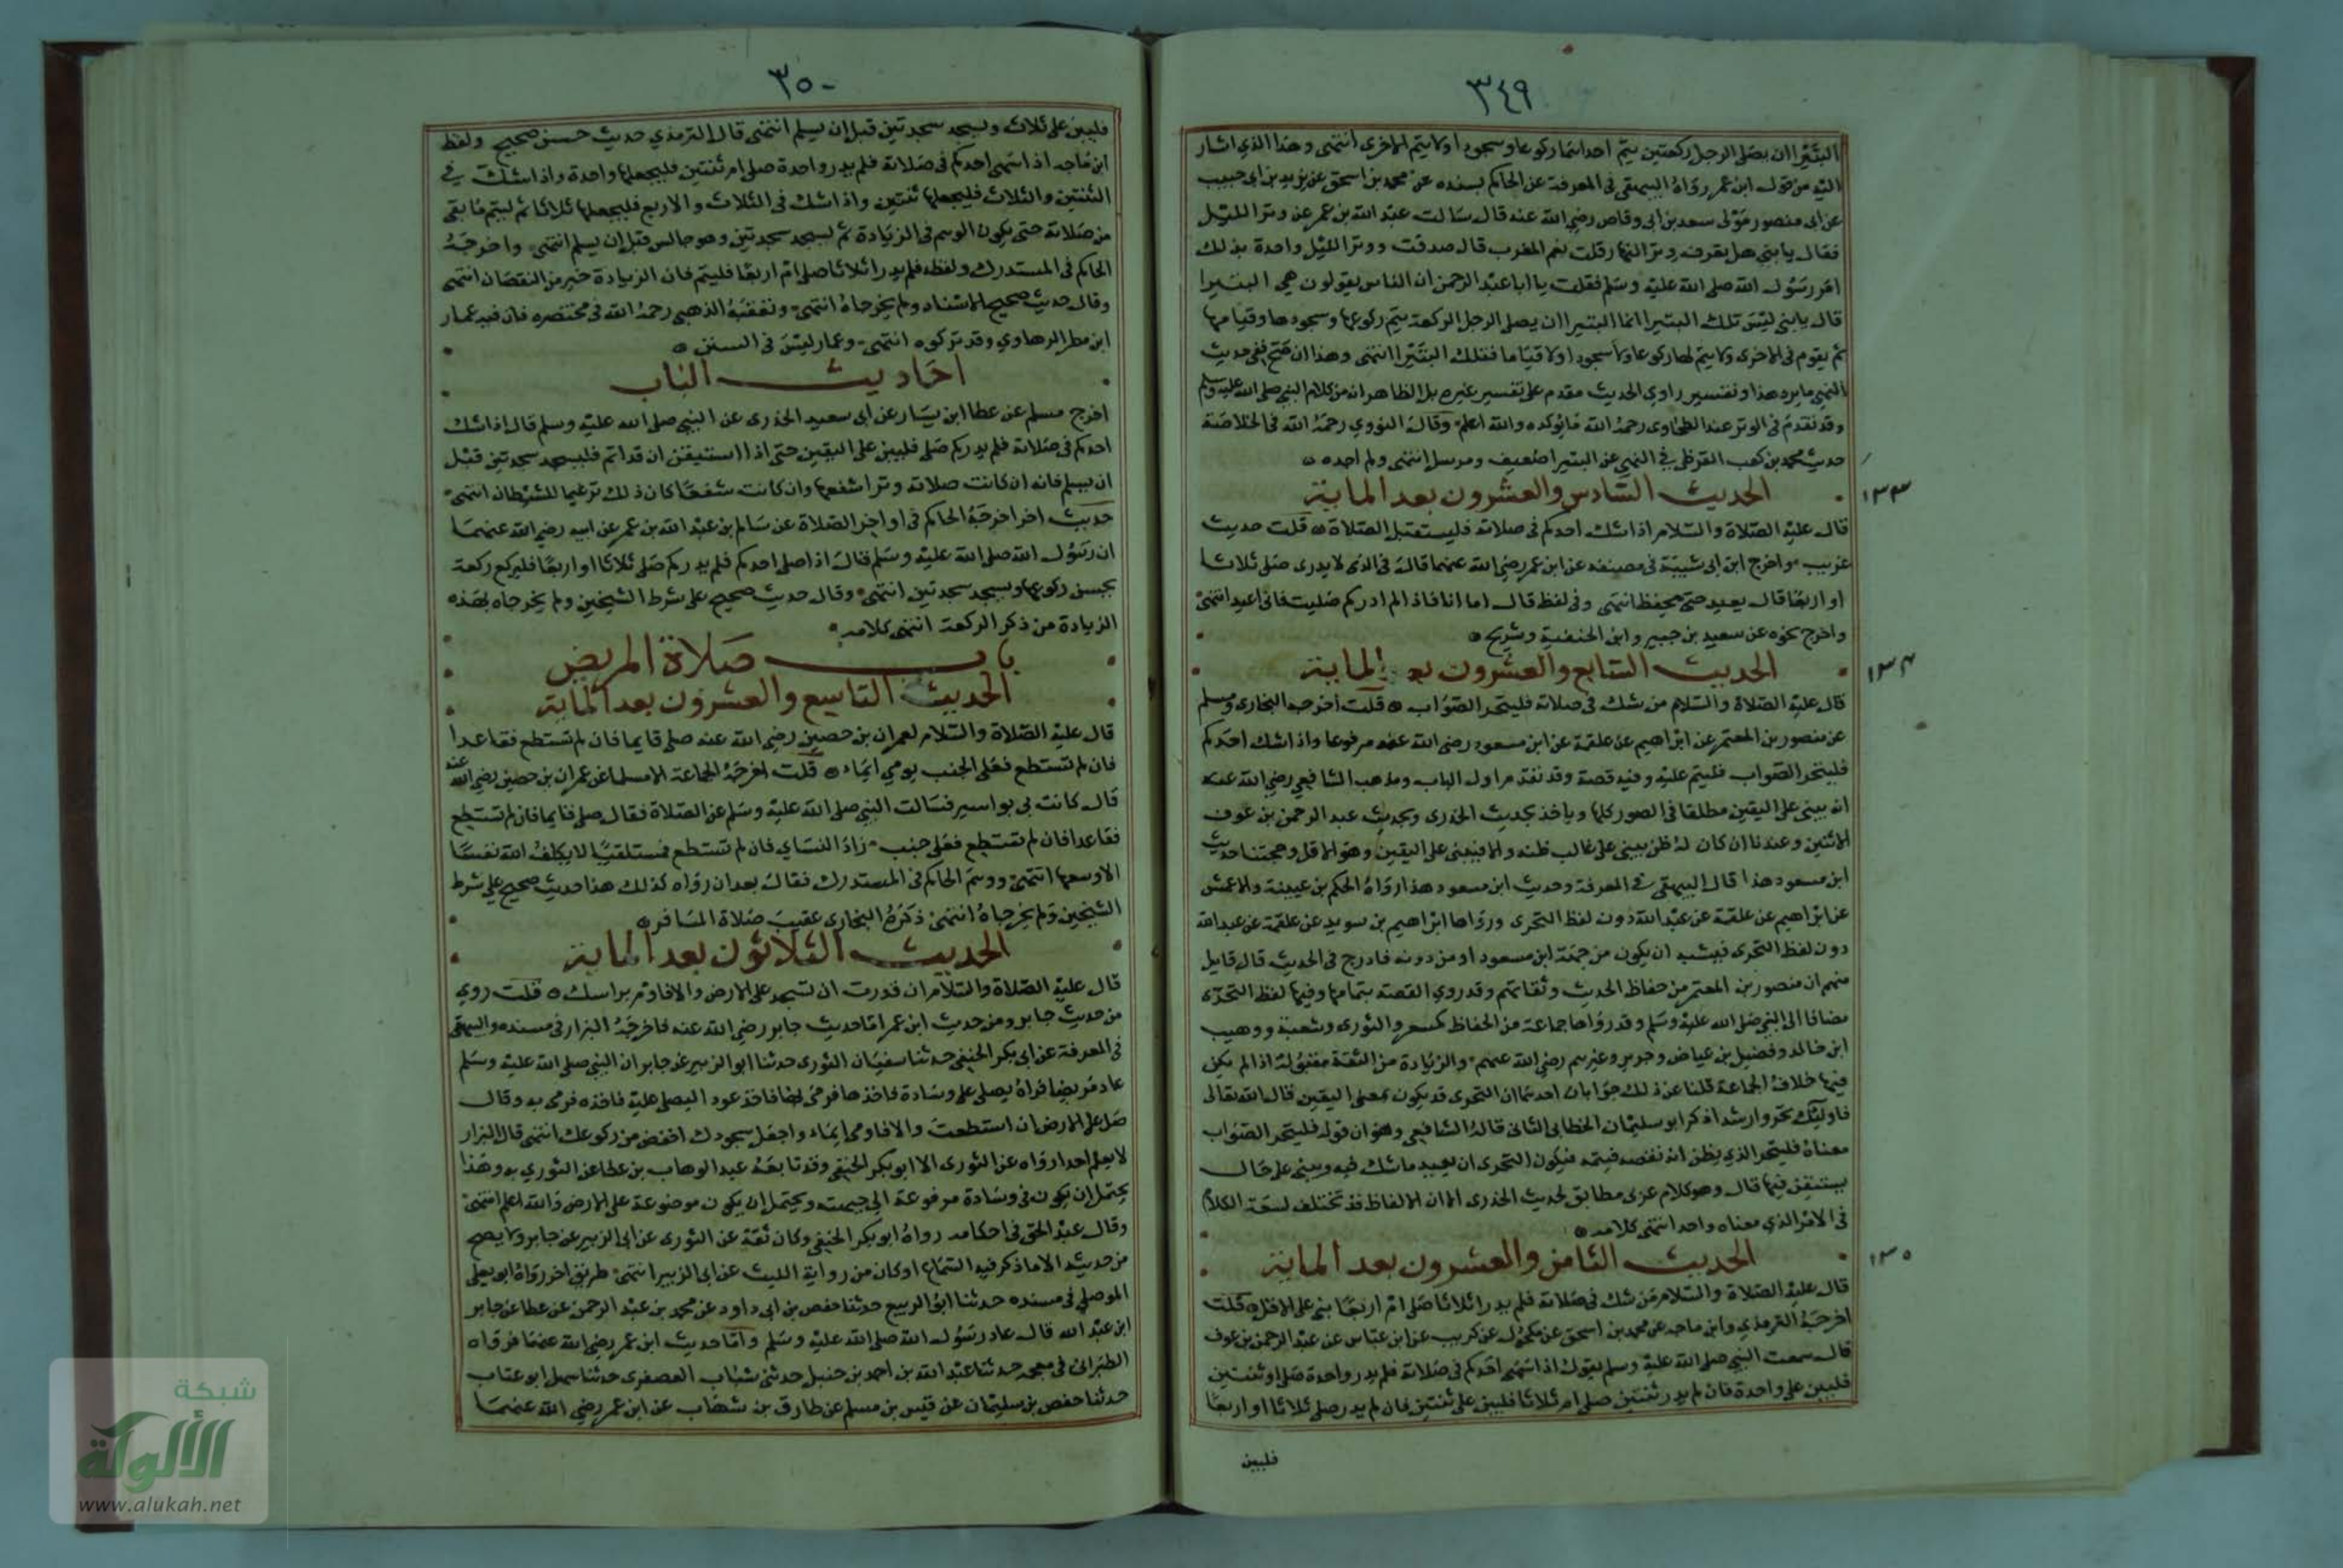 ٣٤٩
البتيرا ان يصلي الرجل ركعتين يتم احداهما ركوعا وسجودا ولا يتم الاخرى انتهى وهذا الذي اشار
اليه من قول ابن عمر رواه البيهقي في المعرفة عن الحاكم بسنده عن محمد بن اسحق عن يزيد بن ابي حبيب
عن ابي منصور مولى سعد بن ابي وقاص رضي الله عنه قال سالت عبد الله بن عمر عن وتر الليل
فقال يا بني هل تعرف وتر النهار قلت نعم المغرب قال صدقت ووتر الليل واحدة بذلك
امر رسول الله صلى الله عليه وسلم فقلت يا ابا عبد الرحمن ان الناس يقولون هي البتيرا
قال يا بني ليس تلك البتيرا انما البتيرا ان يصلي الرجل الركعة يتم ركوعها وسجودها وقيامها
ثم يقوم في الاخرى ولا يتم لها ركوعا ولا سجودا ولا قياما فتلك البتيرا انتهى وهذا ان صح ففي حديث
النهي ما يرد هذا وتفسير راوي الحديث مقدم على تفسير غيره بل الظاهر انه من كلام النبي صلى الله عليه وسلم
وقد تقدم في الوتر عند الطحاوي رحمه الله ما يؤكده والله اعلم وقال النووي رحمه الله في الخلاصة
حديث محمد بن كعب القرظي في النهي عن البتيرا ضعيف ومرسل انتهى ولم اجده
الحديث السادس والعشرون بعد الماية
١٣٣
قال عليه الصلاة والسلام اذا شك احدكم في صلاته فليستقبل الصلاة قلت حديث
غريب واخرج ابن ابي شيبة في مصنفه عن ابن عمر رضي الله عنهما قال في الذي لا يدري صلى ثلاثا
او اربعا قال يعيد حتى يحفظ انتهى وفي لفظ قال اما انا فاذا لم ادر كم صليت فاني اعيد انتهى
واخرج نحوه عن سعيد بن جبير وابن الحنفية وشريح
الحديث السابع والعشرون بعد الماية
١٣٤
قال عليه الصلاة والسلام من شك في صلاته فليتحر الصواب قلت اخرجه البخاري ومسلم
عن منصور بن المعتمر عن ابراهيم عن علقمة عن ابن مسعود رضي الله عنه مرفوعا واذا شك احدكم
فليتحر الصواب فليتم عليه وفيه قصة وقد تقدم اول الباب ومذهب الشافعي رضي الله عنه
انه يبني على اليقين مطلقا في الصور كلها وياخذ بحديث الخدري وبحديث عبد الرحمن بن عوف
الاثنين وعندنا ان كان له ظن يبني على غالب ظنه والا فيبني على اليقين وهو الاقل وحجتنا حديث
ابن مسعود هذا قال البيهقي في المعرفة وحديث ابن مسعود هذا رواه الحكم بن عيينة والاعمش
عن ابراهيم عن علقمة عن عبد الله دون لفظ التحري ورواها ابراهيم بن سويد عن علقمة عن عبد الله
دون لفظ التحري فيشبه ان يكون من جهة ابن مسعود او من دونه فادرج في الحديث قال قايل
منهم ان منصور بن المعتمر من حفاظ الحديث وثقاتهم وقد روي القصة بتمامها وفيها لفظ التحري
مضافا الى النبي صلى الله عليه وسلم وقد رواها جماعة من الحفاظ كمسعر والثوري وشعبة ووهيب
ابن خالد وفضيل بن عياض وجرير وغيرهم رضي الله عنهم والزيادة من الثقة مقبولة اذا لم يكن
فيها خلاف الجماعة قلنا عن ذلك جوابان احدهما ان التحري قد يكون بمعنى اليقين قال الله تعالى
فاوليك تحروا رشدا ذكر ابو سليمان الخطابي الثاني قاله الشافعي وهو ان قوله فليتحر الصواب
معناه فليتحر الذي يظن انه نقصه فيتمه فيكون التحري ان يعيد ما شك فيه ويبني على حال
يستيقن فيها قال وهو كلام عربي مطابق لحديث الخدري الا ان الالفاظ قد تختلف لسعة الكلام
في الامر الذي معناه واحد انتهى كلامه
الحديث الثامن والعشرون بعد الماية
١٣٥
قال عليه الصلاة والسلام من شك في صلاته فلم يدر اثلاثا صلى ام اربعا بنى على الاقل قلت
اخرجه الترمذي وابن ماجه عن محمد بن اسحق عن مكحول عن كريب عن ابن عباس عن عبد الرحمن بن عوف
قال سمعت النبي صلى الله عليه وسلم يقول اذا سهى احدكم في صلاته فلم يدر واحدة صلى او ثنتين
فليبن على واحدة فان لم يدر ثنتين صلى ام ثلاثا فليبن على ثنتين فان لم يدر صلى ثلاثا او اربعا
فليبن
٣٥٠
فليبن على ثلاث وليسجد سجدتين قبل ان يسلم انتهى قال الترمذي حديث حسن صحيح ولفظ
ابن ماجه اذا سهى احدكم في صلاته فلم يدر واحدة صلى ام ثنتين فليجعلها واحدة واذا شك في
الثنتين والثلاث فليجعلها ثنتين واذا شك في الثلاث والاربع فليجعلها ثلاثا ثم ليتم ما بقي
من صلاته حتى يكون الوهم في الزيادة ثم يسجد سجدتين وهو جالس قبل ان يسلم انتهى واخرجه
الحاكم في المستدرك ولفظه فلم يدر اثلاثا صلى ام اربعا فليتم فان الزيادة خير من النقصان انتهى
وقال حديث صحيح الاسناد ولم يخرجاه انتهى وتعقبه الذهبي رحمه الله في مختصره فان فيه عمار
ابن مطر الرهاوي وقد تركوه انتهى وعمار ليس في السنن
احاديث الباب
اخرج مسلم عن عطا ابن يسار عن ابي سعيد الخدري عن النبي صلى الله عليه وسلم قال اذا شك
احدكم في صلاته فلم يدر كم صلى فليبن على اليقين حتى اذا استيقن ان قد اتم فليسجد سجدتين قبل
ان يسلم فانه ان كانت صلاته وترا شفعها وان كانت شفعا كان ذلك ترغيما للشيطان انتهى
حديث اخر اخرجه الحاكم في اواخر الصلاة عن سالم بن عبد الله بن عمر عن ابيه رضي الله عنهما
ان رسول الله صلى الله عليه وسلم قال اذا صلى احدكم فلم يدر كم صلى ثلاثا او اربعا فليركع ركعة
يحسن ركوعها ويسجد سجدتين انتهى وقال حديث صحيح على شرط الشيخين ولم يخرجاه بهذه
الزيادة من ذكر الركعة انتهى كلامه
باب صلاة المريض
الحديث التاسع والعشرون بعد الماية
قال عليه الصلاة والسلام لعمران بن حصين رضي الله عنه صلي قايما فان لم تستطع فقاعدا
فان لم تستطع فعلى الجنب يومي ايماء قلت اخرجه الجماعة الا مسلما عن عمران بن حصين رضي الله عنه
قال كانت بي بواسير فسالت النبي صلى الله عليه وسلم عن الصلاة فقال صلي قايما فان لم تستطع
فقاعدا فان لم تستطع فعلى جنب زاد النساي فان لم تستطع فمستلقيا لا يكلف الله نفسا
الا وسعها انتهى ووهم الحاكم في المستدرك فقال بعد ان رواه كذلك هذا حديث صحيح على شرط
الشيخين ولم يخرجاه انتهى ذكره البخاري عقيب صلاة المسافر
الحديث الثلاثون بعد الماية
قال عليه الصلاة والسلام ان قدرت ان تسجد على الارض والا فاوم براسك قلت روي
من حديث جابر ومن حديث ابن عمر اما حديث جابر رضي الله عنه فاخرجه البزار في مسنده والبيهقي
في المعرفة عن ابي بكر الحنفي حدثنا سفيان الثوري حدثنا ابو الزبير عن جابر ان النبي صلى الله عليه وسلم
عاد مريضا فراه يصلي على وسادة فاخذها فرمى بها فاخذ عودا ليصلي عليه فاخذه فرمى به وقال
صل على الارض ان استطعت والا فاومي ايماء واجعل سجودك اخفض من ركوعك انتهى قال البزار
لا يعلم احد رواه عن الثوري الا ابو بكر الحنفي وقد تابعه عبد الوهاب بن عطا عن الثوري به وهذا
يحتمل ان يكون في وسادة مرفوعة الى جبهته ويحتمل ان يكون موضوعة على الارض والله اعلم انتهى
وقال عبد الحق في احكامه رواه ابو بكر الحنفي وكان ثقة عن الثوري عن ابي الزبير عن جابر ولا يصح
من حديثه الا ما ذكر فيه السماع او كان من رواية الليث عن ابي الزبير انتهى طريق اخر رواه ابو يعلى
الموصلي في مسنده حدثنا ابو الربيع حدثنا حفص بن ابي داود عن محمد بن عبد الرحمن عن عطا عن جابر
ابن عبد الله قال عاد رسول الله صلى الله عليه وسلم واما حديث ابن عمر رضي الله عنهما فرواه
الطبراني في معجمه حدثنا عبد الله بن احمد بن حنبل حدثني شباب العصفري حدثنا سهل ابو عتاب
حدثنا حفص بن سليمان عن قيس بن مسلم عن طارق بن شهاب عن ابن عمر رضي الله عنهما
شبكة
الألوكة
www.alukah.net